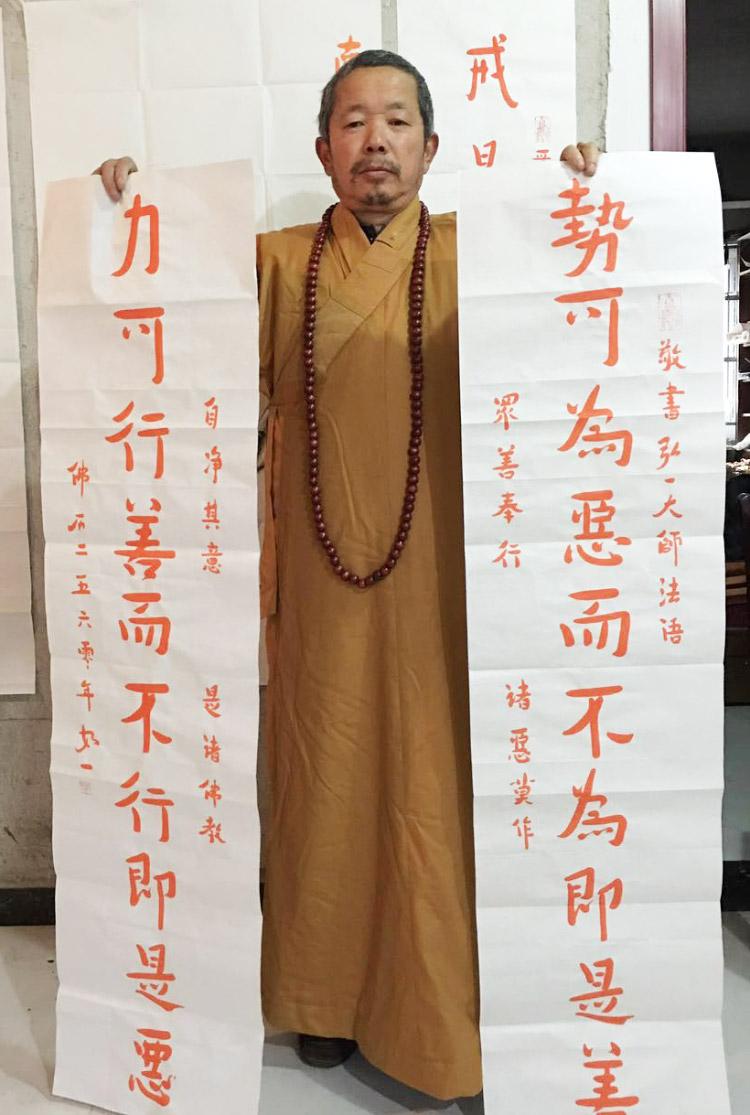 戒
日
敬書弘一大師法语
勢可為惡而不為即是善
眾善奉行
諸惡莫作
自净其意
是諸佛教
力可行善而不行即是悪
佛二五六零年 如一